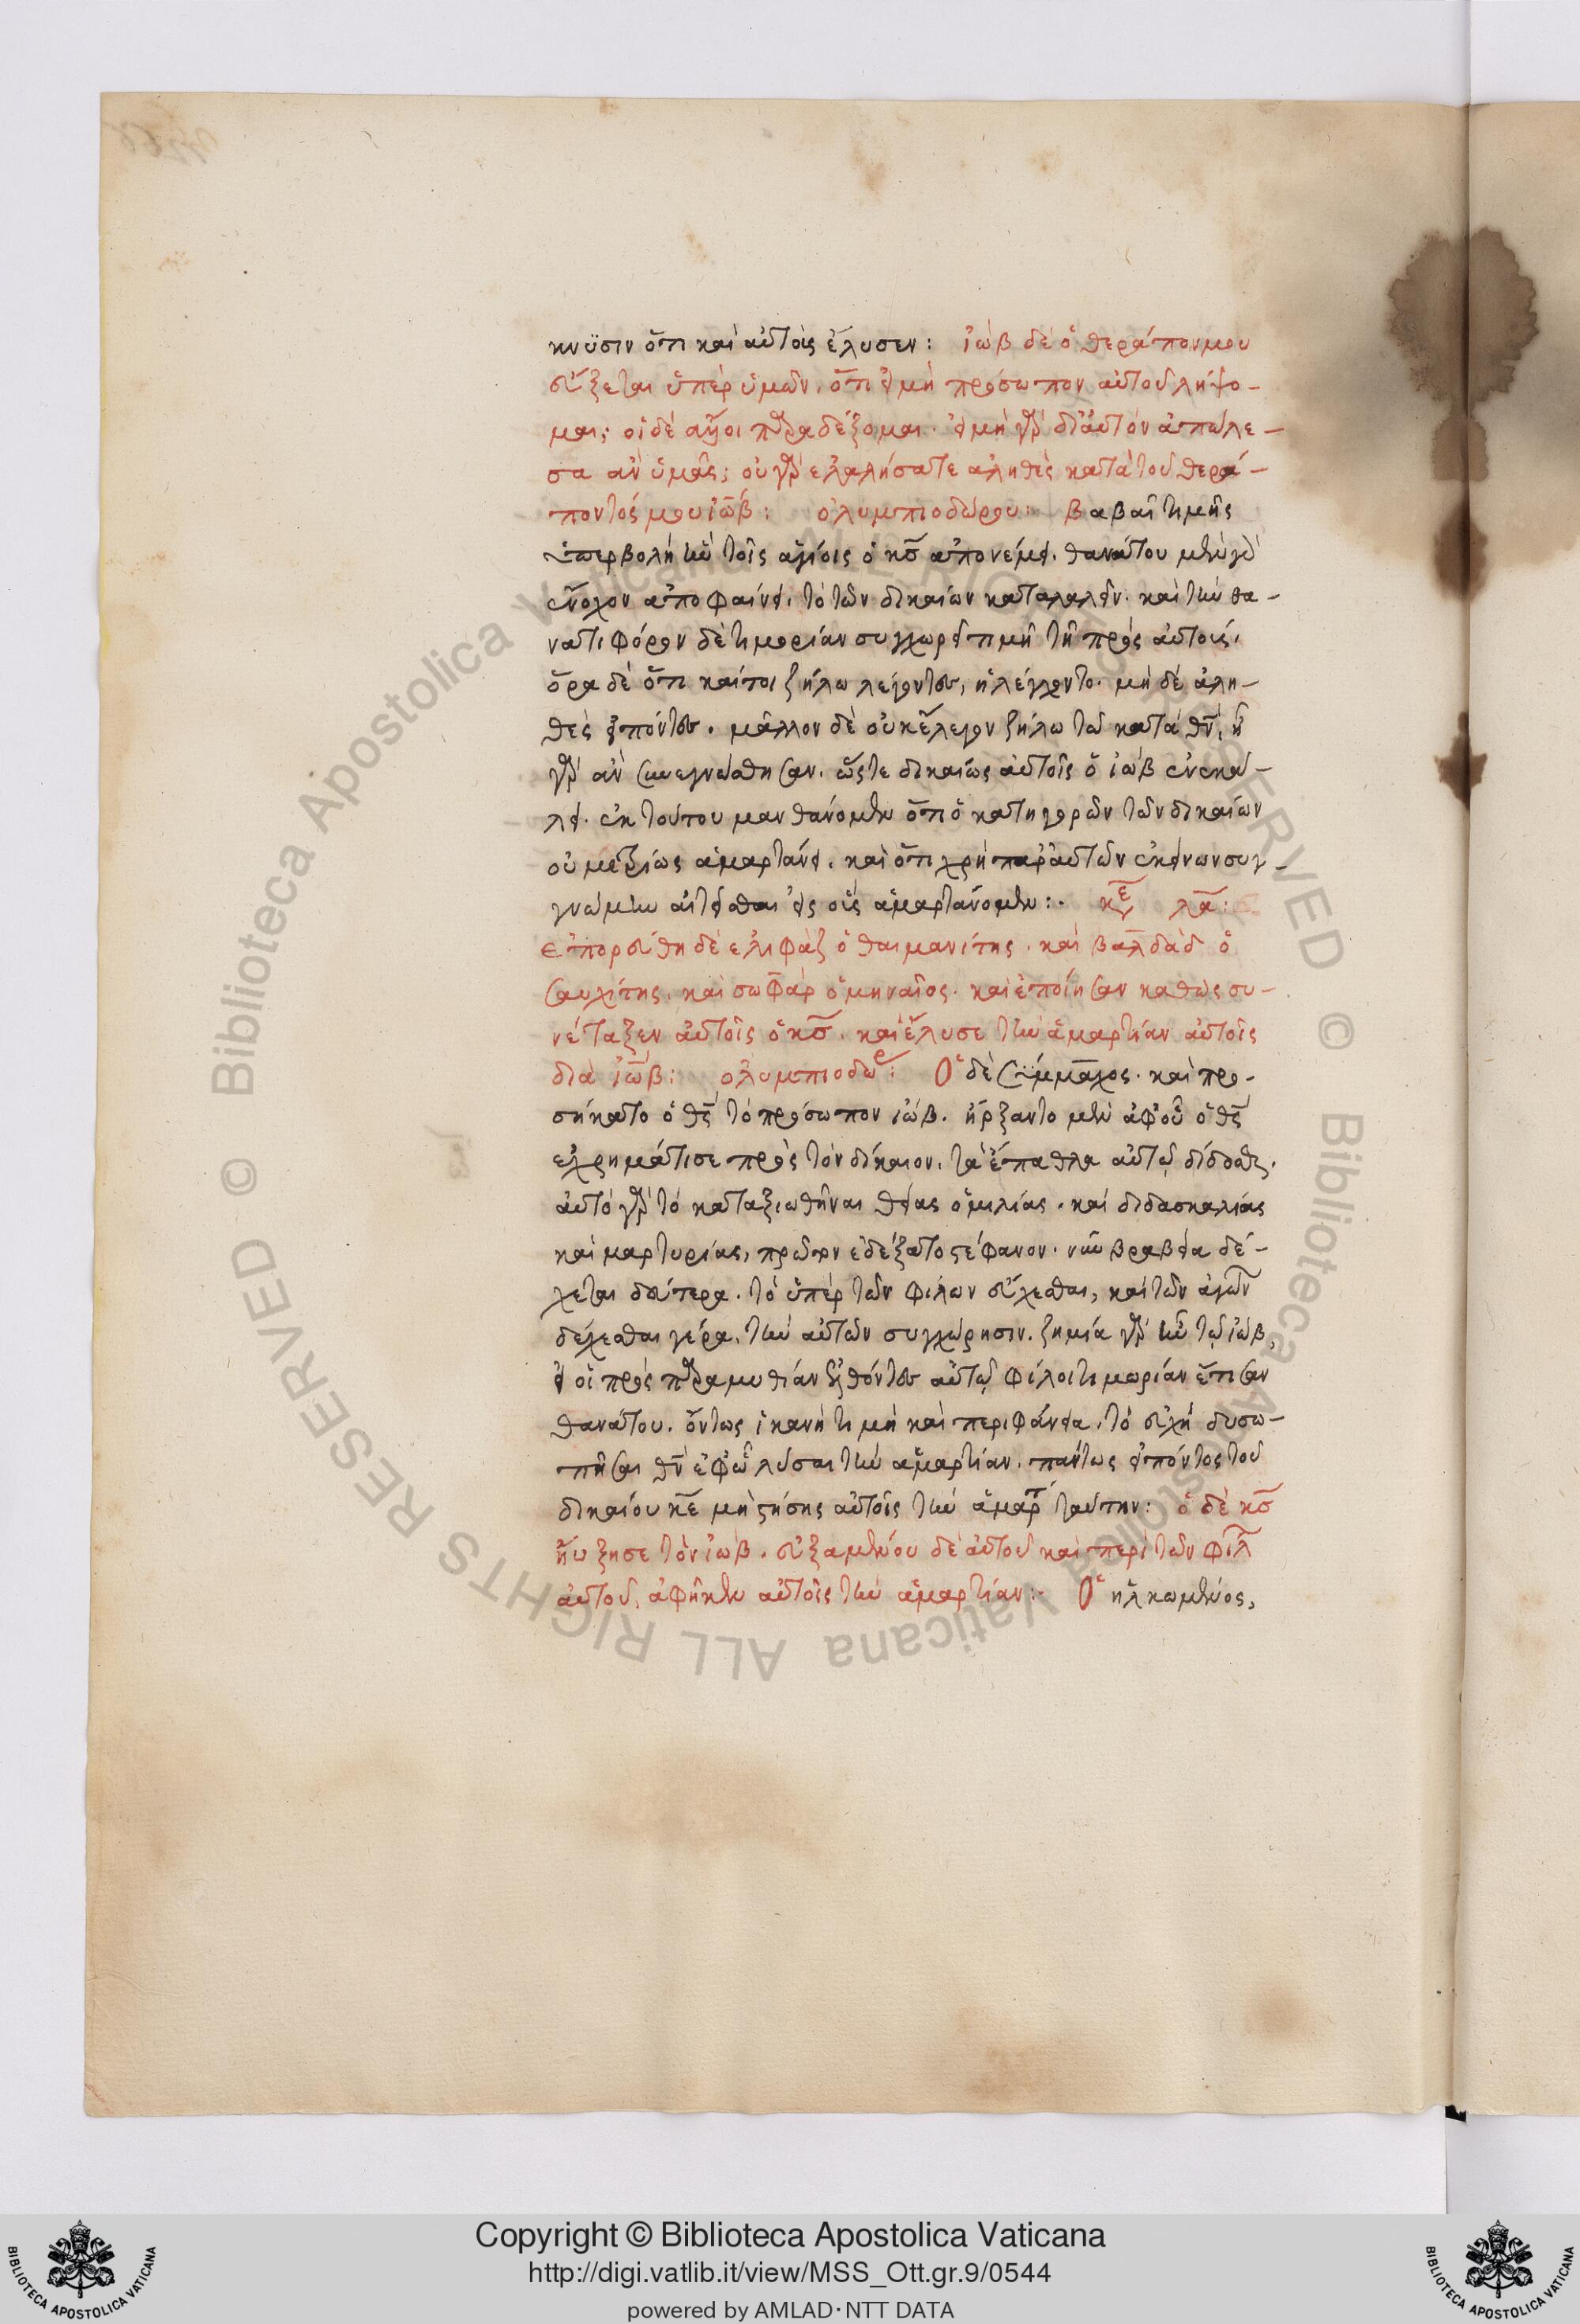 κνύσιν ὅτι καὶ αὐτοῖς ἔλυσεν: ἰὼβ δὲ ὁ θεράπον μου
εὔξεται ὑπὲρ ὑμῶν. ὅτι εἰ μὴ πρόσωπον αὐτοῦ λήψο-
μαι; εἰ μὴ γὰρ δι' αὐτὸν ἀπώλε-
σα ἂν ὑμᾶς; οὐ γὰρ ελαλήσατε αληθὲς κατὰ τοῦ θερά-
ποντός μου ἰώβ: ολυμπιοδώρου: βαβαὶ τιμῆς
ὑπερβολὴ τοῖς ἁγίοις ὁ κς ἀπονέμει. θανάτου μὲν γὰρ
ἔνοχον αποφαίνει. τὸ τῶν δικαίων καταλαλεῖν. καὶ τὴν θα-
νατιφόρον δὲ τιμορίαν συγχωρεῖ τιμῆ τῆ πρὸς αὐτούς.
ὅρα δὲ ὅτι καίτοι ζήλω λέγοντες, ἠλέγχοντο. μὴ δὲ ἀλη-
θὲς εἰπόντες. μᾶλλον δὲ οὐκ ἔλεγον ζήλω τῶ κατὰ θν, ἢ
γὰρ ἂν συνεγνώσθησαν. ὥστε δικαίως αὐτοῖς ὁ ἰὼβ ἐνεκά-
λει. ἐκ τούτου μανθάνομεν ὅτι ὁ κατηγορῶν τῶν δικαίων
οὐ μετρίως ἁμαρτάνει. καὶ ὅτι χρὴ παρ' αὐτῶν ἐκείνων συγ-
γνώμην αἰτεῖσθαι εἰς οὓς ἁμαρτάνομεν:. κε λα:
ἐπορεύθη δὲ ελιφὰζ ὁ θαιμανίτης. καὶ βαλδὰδ ὁ
σαυχίτης, καὶ σωφὰρ ὁ μηναῖος. καὶ ἐποίησαν καθὼς συ-
νέταξεν αὐτοῖς ὁ κς. καὶ ἔλυσε τὴν ἁμαρτίαν αὐτοῖς
διὰ ἰώβ: ολυμπιοδωρ: Ὁ δὲ σύμμαχος. καὶ προ-
σήκατο ὁ θς τὸ πρόσωπον ἰώβ. ἤρξαντο μὲν ἀφ' οὗ ὁ θς
εχρημάτισε πρὸς τὸν δίκαιον. τὰ ἔπαθλα αὐτῷ δίδοσθαι.
αὐτὸ γὰρ τὸ καταξιωθῆναι θείας ὁμιλίας. καὶ διδασκαλίας
καὶ μαρτυρίας, πρῶτον εδέξατο στέφανον. νῦν βραβεῖα δέ-
χεται δεύτερα. τὸ ὑπὲρ τῶν φίλων εὔχεσθαι, καὶ τῶν ἀγών
δέχεσθαι γέρα. τὴν αὐτῶν συγχώρησιν. ζημία γὰρ ἦν τῷ ἰώβ,
εἰ οἱ πρὸς παραμυθίαν ἐλθόντες αὐτῷ φίλοι τιμωρίαν ἔτισαν
θανάτου. ὄντως ἱκανὴ τιμὴ καὶ περιφάνεια. τὸ εὐχῆ δυσω-
πῆσαι θν ἐφ' ὧ λύσαι τὴν ἁμαρτίαν. πάντως εἰπόντος τοῦ
δικαίου κε μὴ στήσης αὐτοῖς τὴν ἁμαρτ ταύτην: ὁ δὲ κς
ηὔξησε τὸν ἰώβ. εὐξαμένου δὲ αὐτοῦ καὶ περὶ τῶν φίλ
αὐτοῦ, ἀφῆκεν αὐτοῖς τὴν ἁμαρτίαν:- Ὁ ἡλκωμένος,
Copyright © Biblioteca Apostolica Vaticana
http://digi.vatlib.it/view/MSS_Ott.gr.9/0544
powered by AMLAD · NTT DATA
BIBLIOTECA APOSTOLICA VATICANA
BIBLIOTECA APOSTOLICA VATICANA
© Biblioteca Apostolica Vaticana ALL RIGHTS RESERVED
© Biblioteca Apostolica Vaticana ALL RIGHTS RESERVED